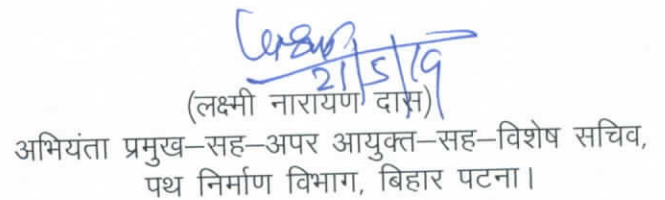 21/5/19
(लक्ष्मी नारायण दास)
अभियंता प्रमुख–सह–अपर आयुक्त–सह–विशेष सचिव,
पथ निर्माण विभाग, बिहार पटना।